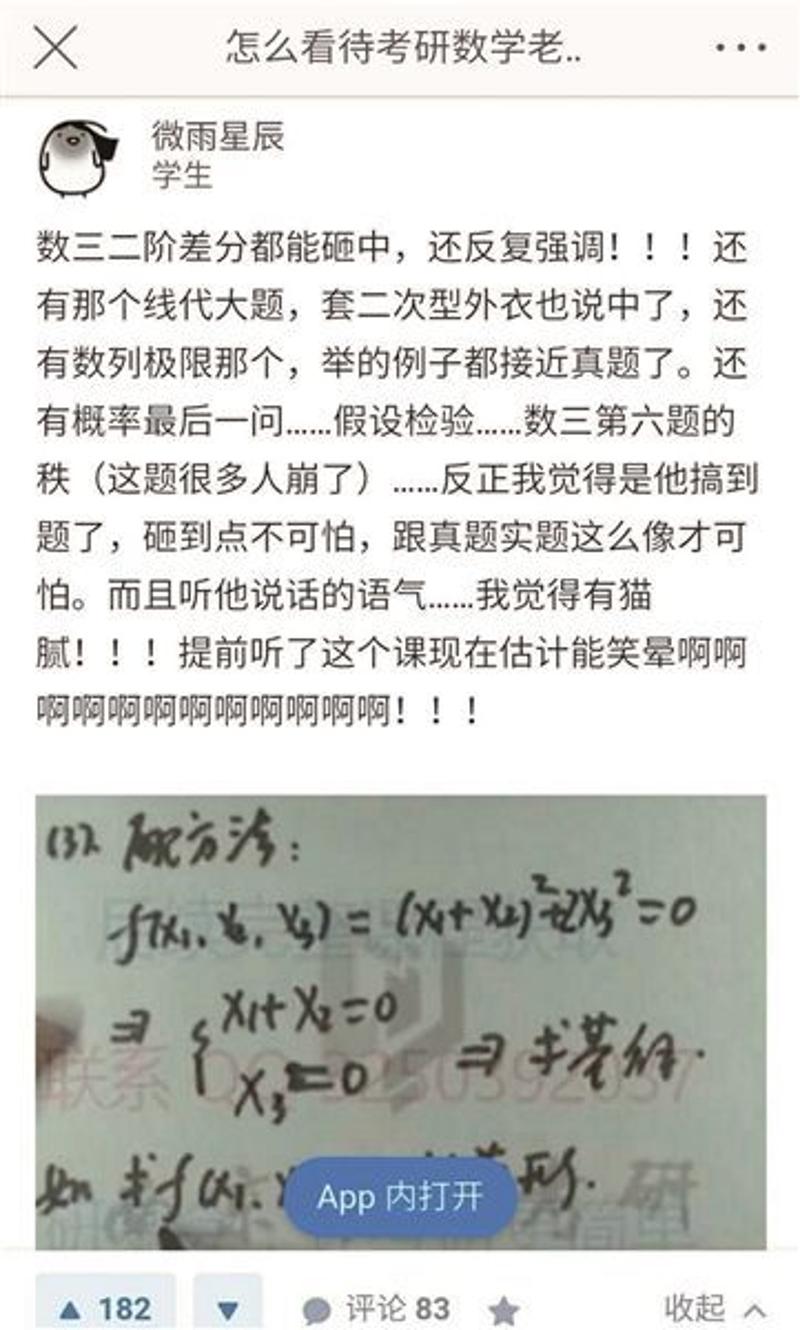 怎么看待考研数学老..
微雨星辰
学生
数三二阶差分都能砸中，还反复强调！！！还
有那个线代大题，套二次型外衣也说中了，还
有数列极限那个，举的例子都接近真题了。还
有概率最后一问……假设检验……数三第六题的
秩（这题很多人崩了）……反正我觉得是他搞到
题了，砸到点不可怕，跟真题实题这么像才可
怕。而且听他说话的语气……我觉得有猫
腻！！！提前听了这个课现在估计能笑晕啊啊
啊啊啊啊啊啊啊啊啊啊！！！
(3). 配方法：
f(x₁, x₂, x₃) = (x₁+x₂)²+2x₃²=0
⇒ { x₁+x₂=0
x₃=0 ⇒ 求基础解.
如 求f(x₁.
形.
联系 QQ
App 内打开
182
评论 83
收起